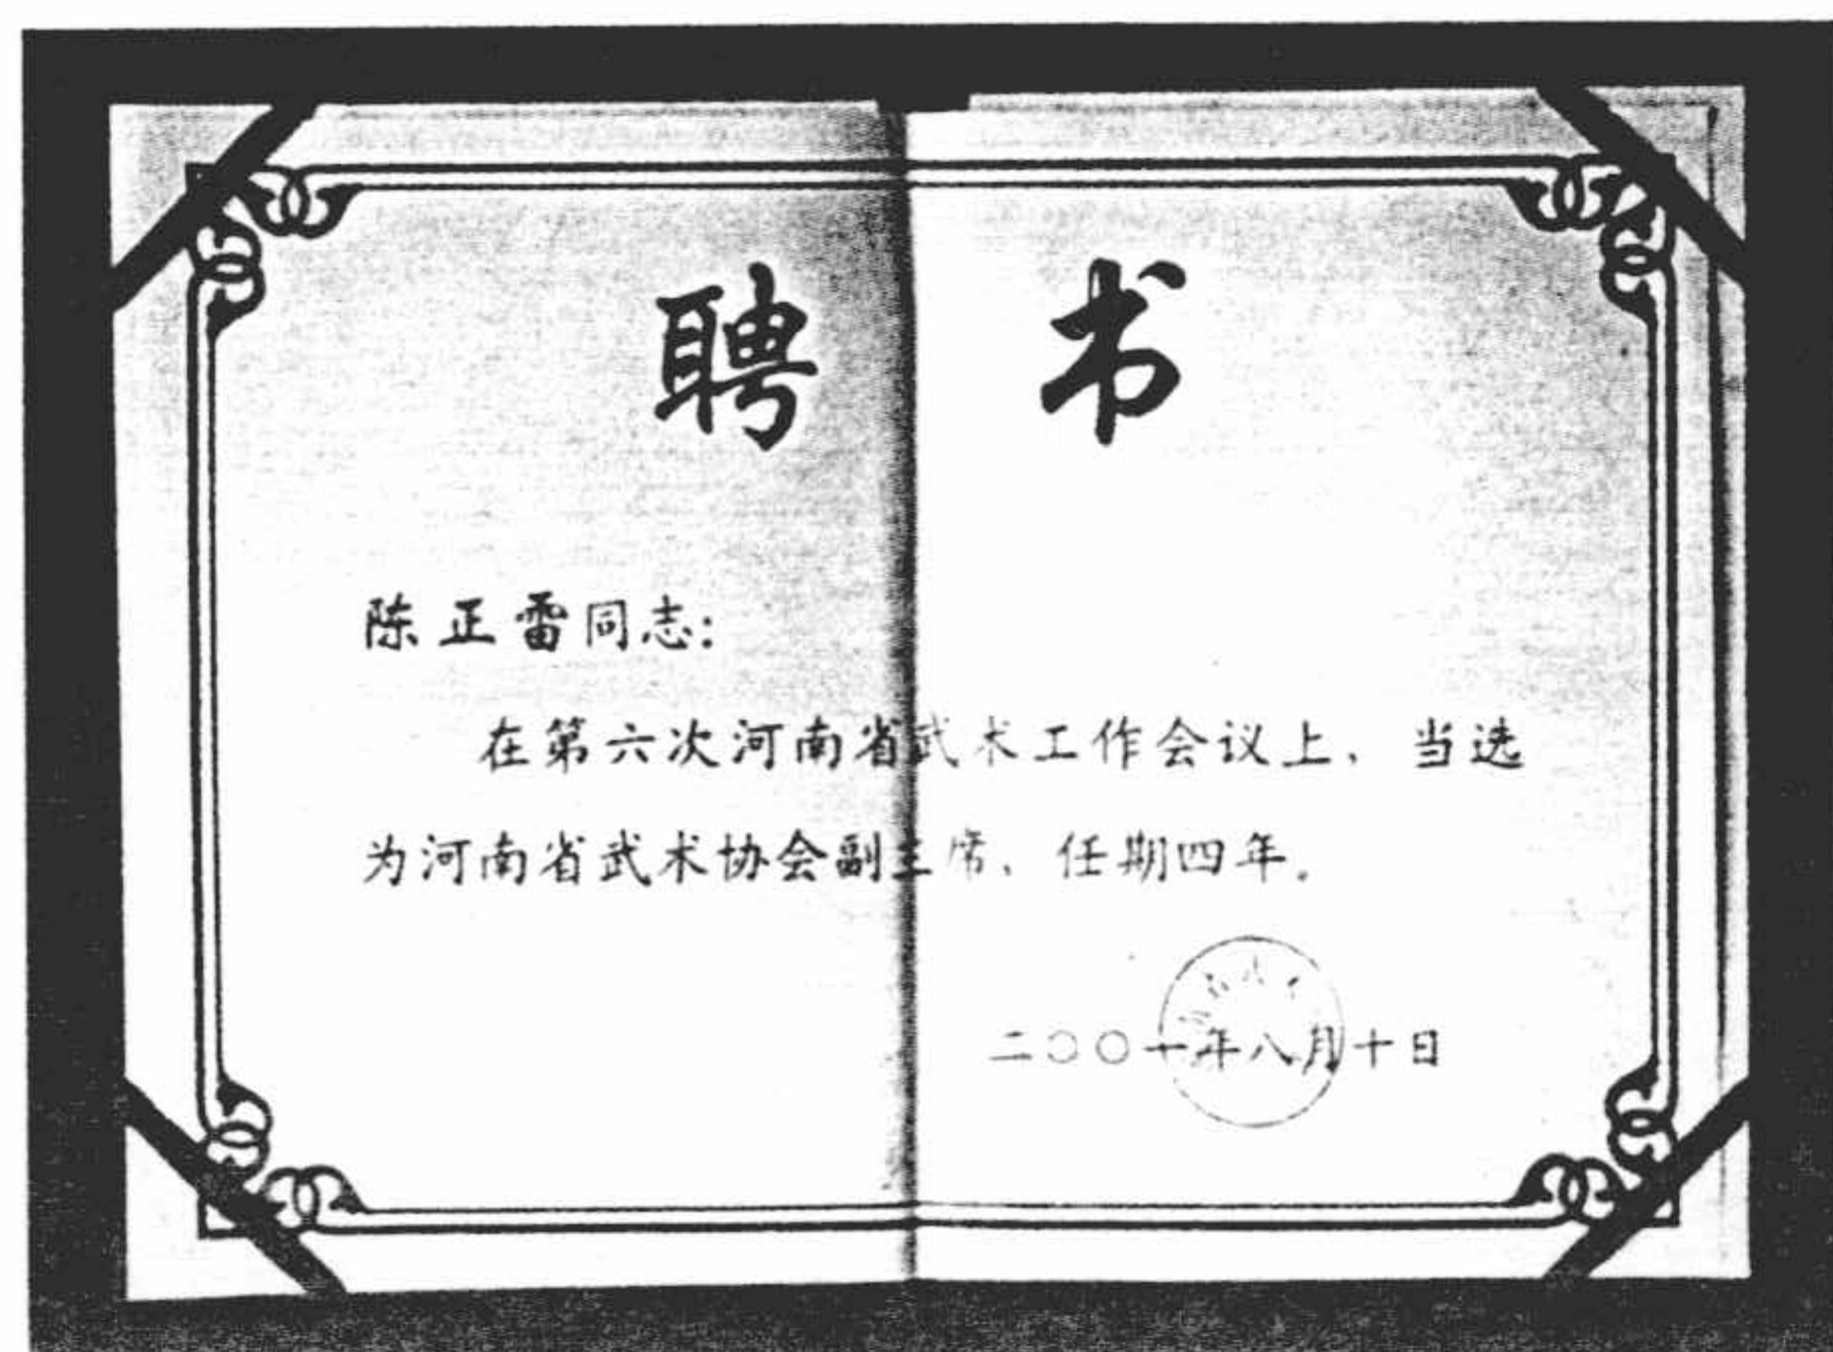 聘书
陈正雷同志:
在第六次河南省武术工作会议上、当选
为河南省武术协会副主席、任期四年。
二〇〇一年八月十日